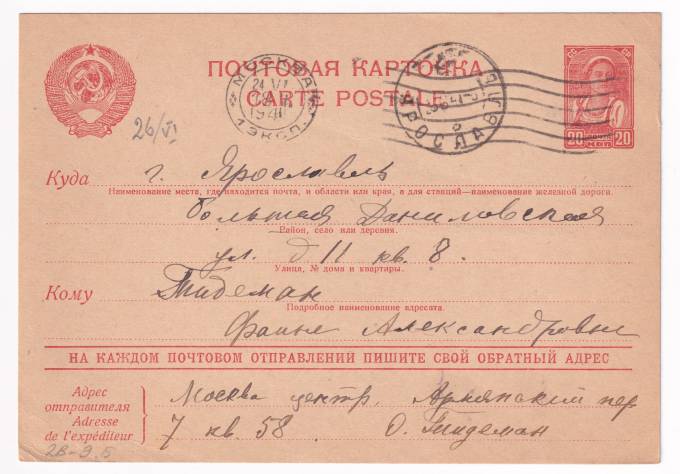 ПОЧТОВАЯ КАРТОЧКА
CARTE POSTALE
МОСКВА
1941
1 ЭКСП.
ЯРОСЛАВЛЬ
20 КОП 20
26/VI
Куда г. Ярославль
Наименование места, где находится почта, и области или края, а для станций—наименование железной дороги.
Большая Даниловская
Район, село или деревня.
ул. д 11 кв. 8.
Улица, № дома и квартиры.
Кому Тидеман
Подробное наименование адресата.
Фаине Александровне
НА КАЖДОМ ПОЧТОВОМ ОТПРАВЛЕНИИ ПИШИТЕ СВОЙ ОБРАТНЫЙ АДРЕС
Адрес отправителя
Adresse de l'expéditeur
Москва центр, Армянский пер
7 кв. 58 О. Тидеман
2В-9.Б